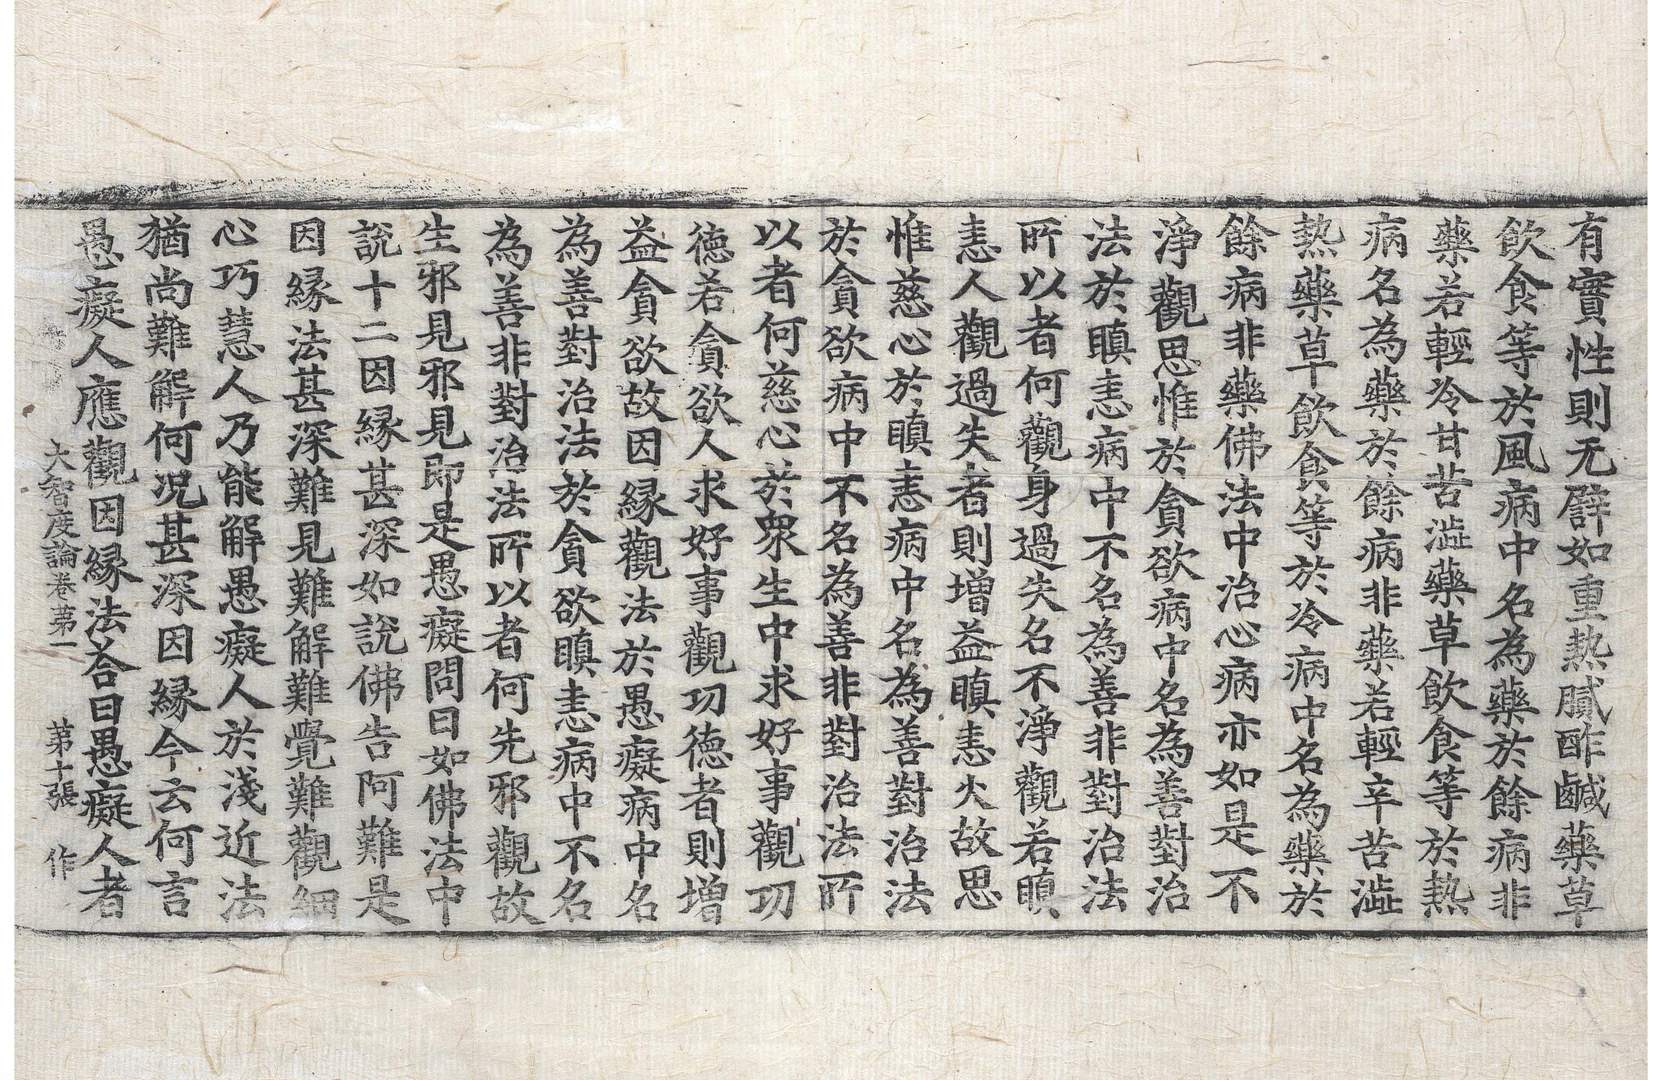 有實性則无譬如重熱膩酢鹹藥草
飮食等於風病中名為藥於餘病非
藥若輕冷甘苦澁藥草飮食等於熱
病名為藥於餘病非藥若輕辛苦澁
熱藥草飮食等於冷病中名為藥於
餘病非藥佛法中治心病亦如是不
淨觀思惟於貪欲病中名為善對治
法於瞋恚病中不名為善非對治法
所以者何觀身過失名不淨觀若瞋
恚人觀過失者則增益瞋恚火故思
惟慈心於瞋恚病中名為善對治法
於貪欲病中不名為善非對治法所
以者何慈心於衆生中求好事觀功
德若貪欲人求好事觀功德者則增
益貪欲故因緣觀法於愚癡病中名
為善對治法於貪欲瞋恚病中不名
為善非對治法所以者何先邪觀故
生邪見邪見即是愚癡問曰如佛法中
說十二因緣甚深如說佛告阿難是
因緣法甚深難見難解難覺難觀細
心巧慧人乃能解愚癡人於淺近法
猶尚難解何況甚深因緣今云何言
愚癡人應觀因緣法荅曰愚癡人者
大智度論卷第一 第十張 作